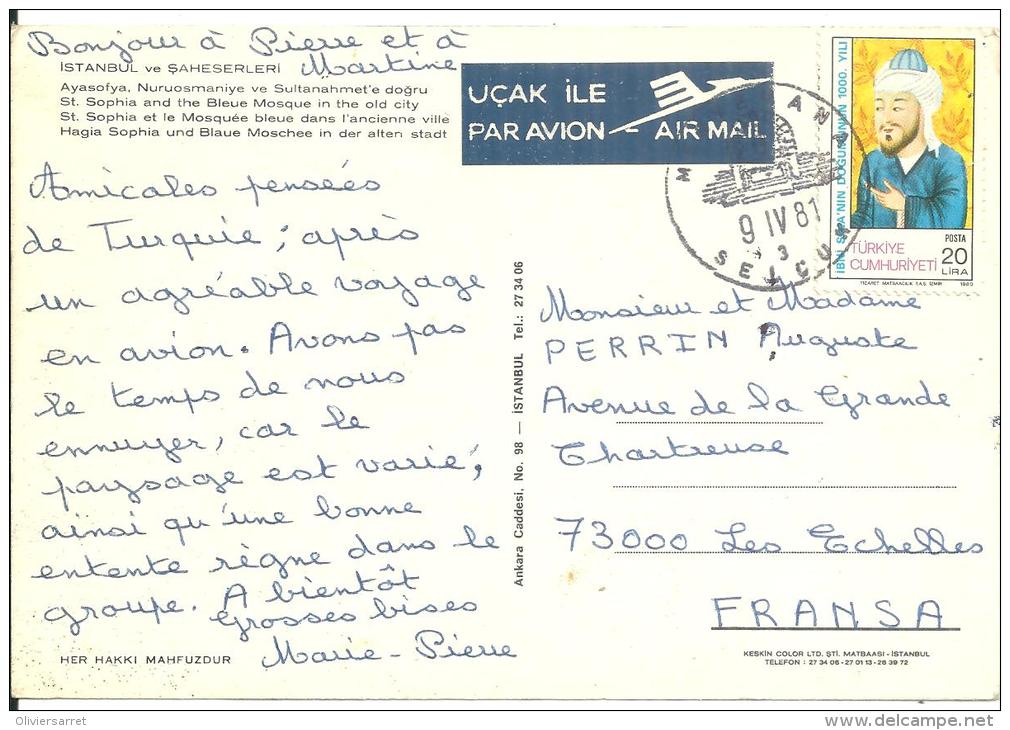 Bonjour à Pierre et à
Martine
İSTANBUL ve ŞAHESERLERİ
Ayasofya, Nuruosmaniye ve Sultanahmet'e doğru
St. Sophia and the Bleue Mosque in the old city
St. Sophia et le Mosquée bleue dans l'ancienne ville
Hagia Sophia und Blaue Moschee in der alten stadt
Amicales pensées
de Turquie ; après
un agréable voyage
en avion. Avons pas
le temps de nous
ennuyer, car le
paysage est varié,
ainsi qu'une bonne
entente règne dans le
groupe. A bientôt
Grosses bises
Marie-Pierre
HER HAKKI MAHFUZDUR
Ankara Caddesi, No. 98 — İSTANBUL Tel.: 27 34 06
UÇAK İLE
PAR AVION AIR MAIL
9 IV 81
3
SELÇUK
İBNİ SİNA'NIN DOĞUMUNUN 1000. YILI
TÜRKİYE
CUMHURİYETİ
POSTA
20
LİRA
TİCARET MATBAACILIK T.A.Ş. İZMİR 1980
Monsieur et Madame
PERRIN Auguste
Avenue de la Grande
Chartreuse
73000 Les Echelles
FRANSA
KESKİN COLOR LTD. ŞTİ. MATBAASI - İSTANBUL
TELEFON : 27 34 06 - 27 01 13 - 26 39 72
Oliviersarret
www.delcampe.net